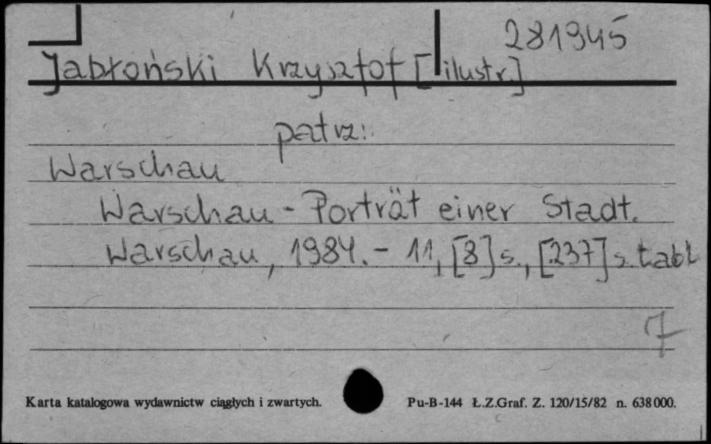 281945
Jabłoński Krzysztof [ilustr.]
patrz:
Warschau
Warschau - Porträt einer Stadt.
Warschau, 1984. - 11, [8] s., [237] s. tabl
Karta katalogowa wydawnictw ciągłych i zwartych.
Pu-B-144 Ł.Z.Graf. Z. 120/15/82 n. 638000.